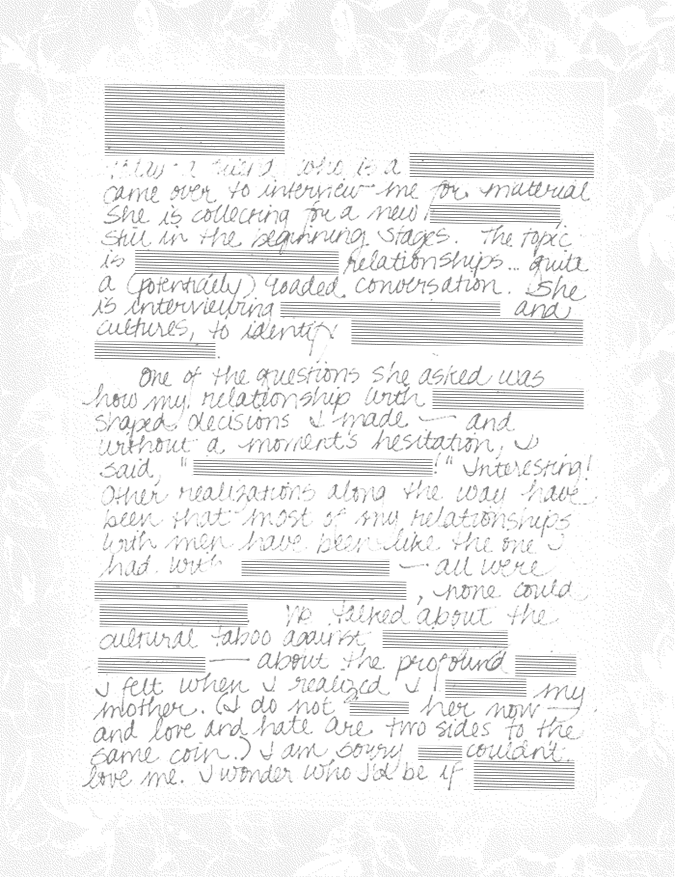 Today a friend who is a
came over to interview me for material
she is collecting for a new
still in the beginning stages. The topic
is relationships... quite
a (potentially) loaded conversation. She
is interviewing and
cultures, to identify
.
One of the questions she asked was
how my relationship with
shaped decisions I made — and
without a moment's hesitation, I
said, " !" Interesting!
Other realizations along the way have
been that most of my relationships
with men have been like the one I
had with — all were
, none could
We talked about the
cultural taboo against
— about the profound
I felt when I realized I my
mother. (I do not her now —
and love and hate are two sides to the
same coin.) I am sorry couldn't
love me. I wonder who I'd be if